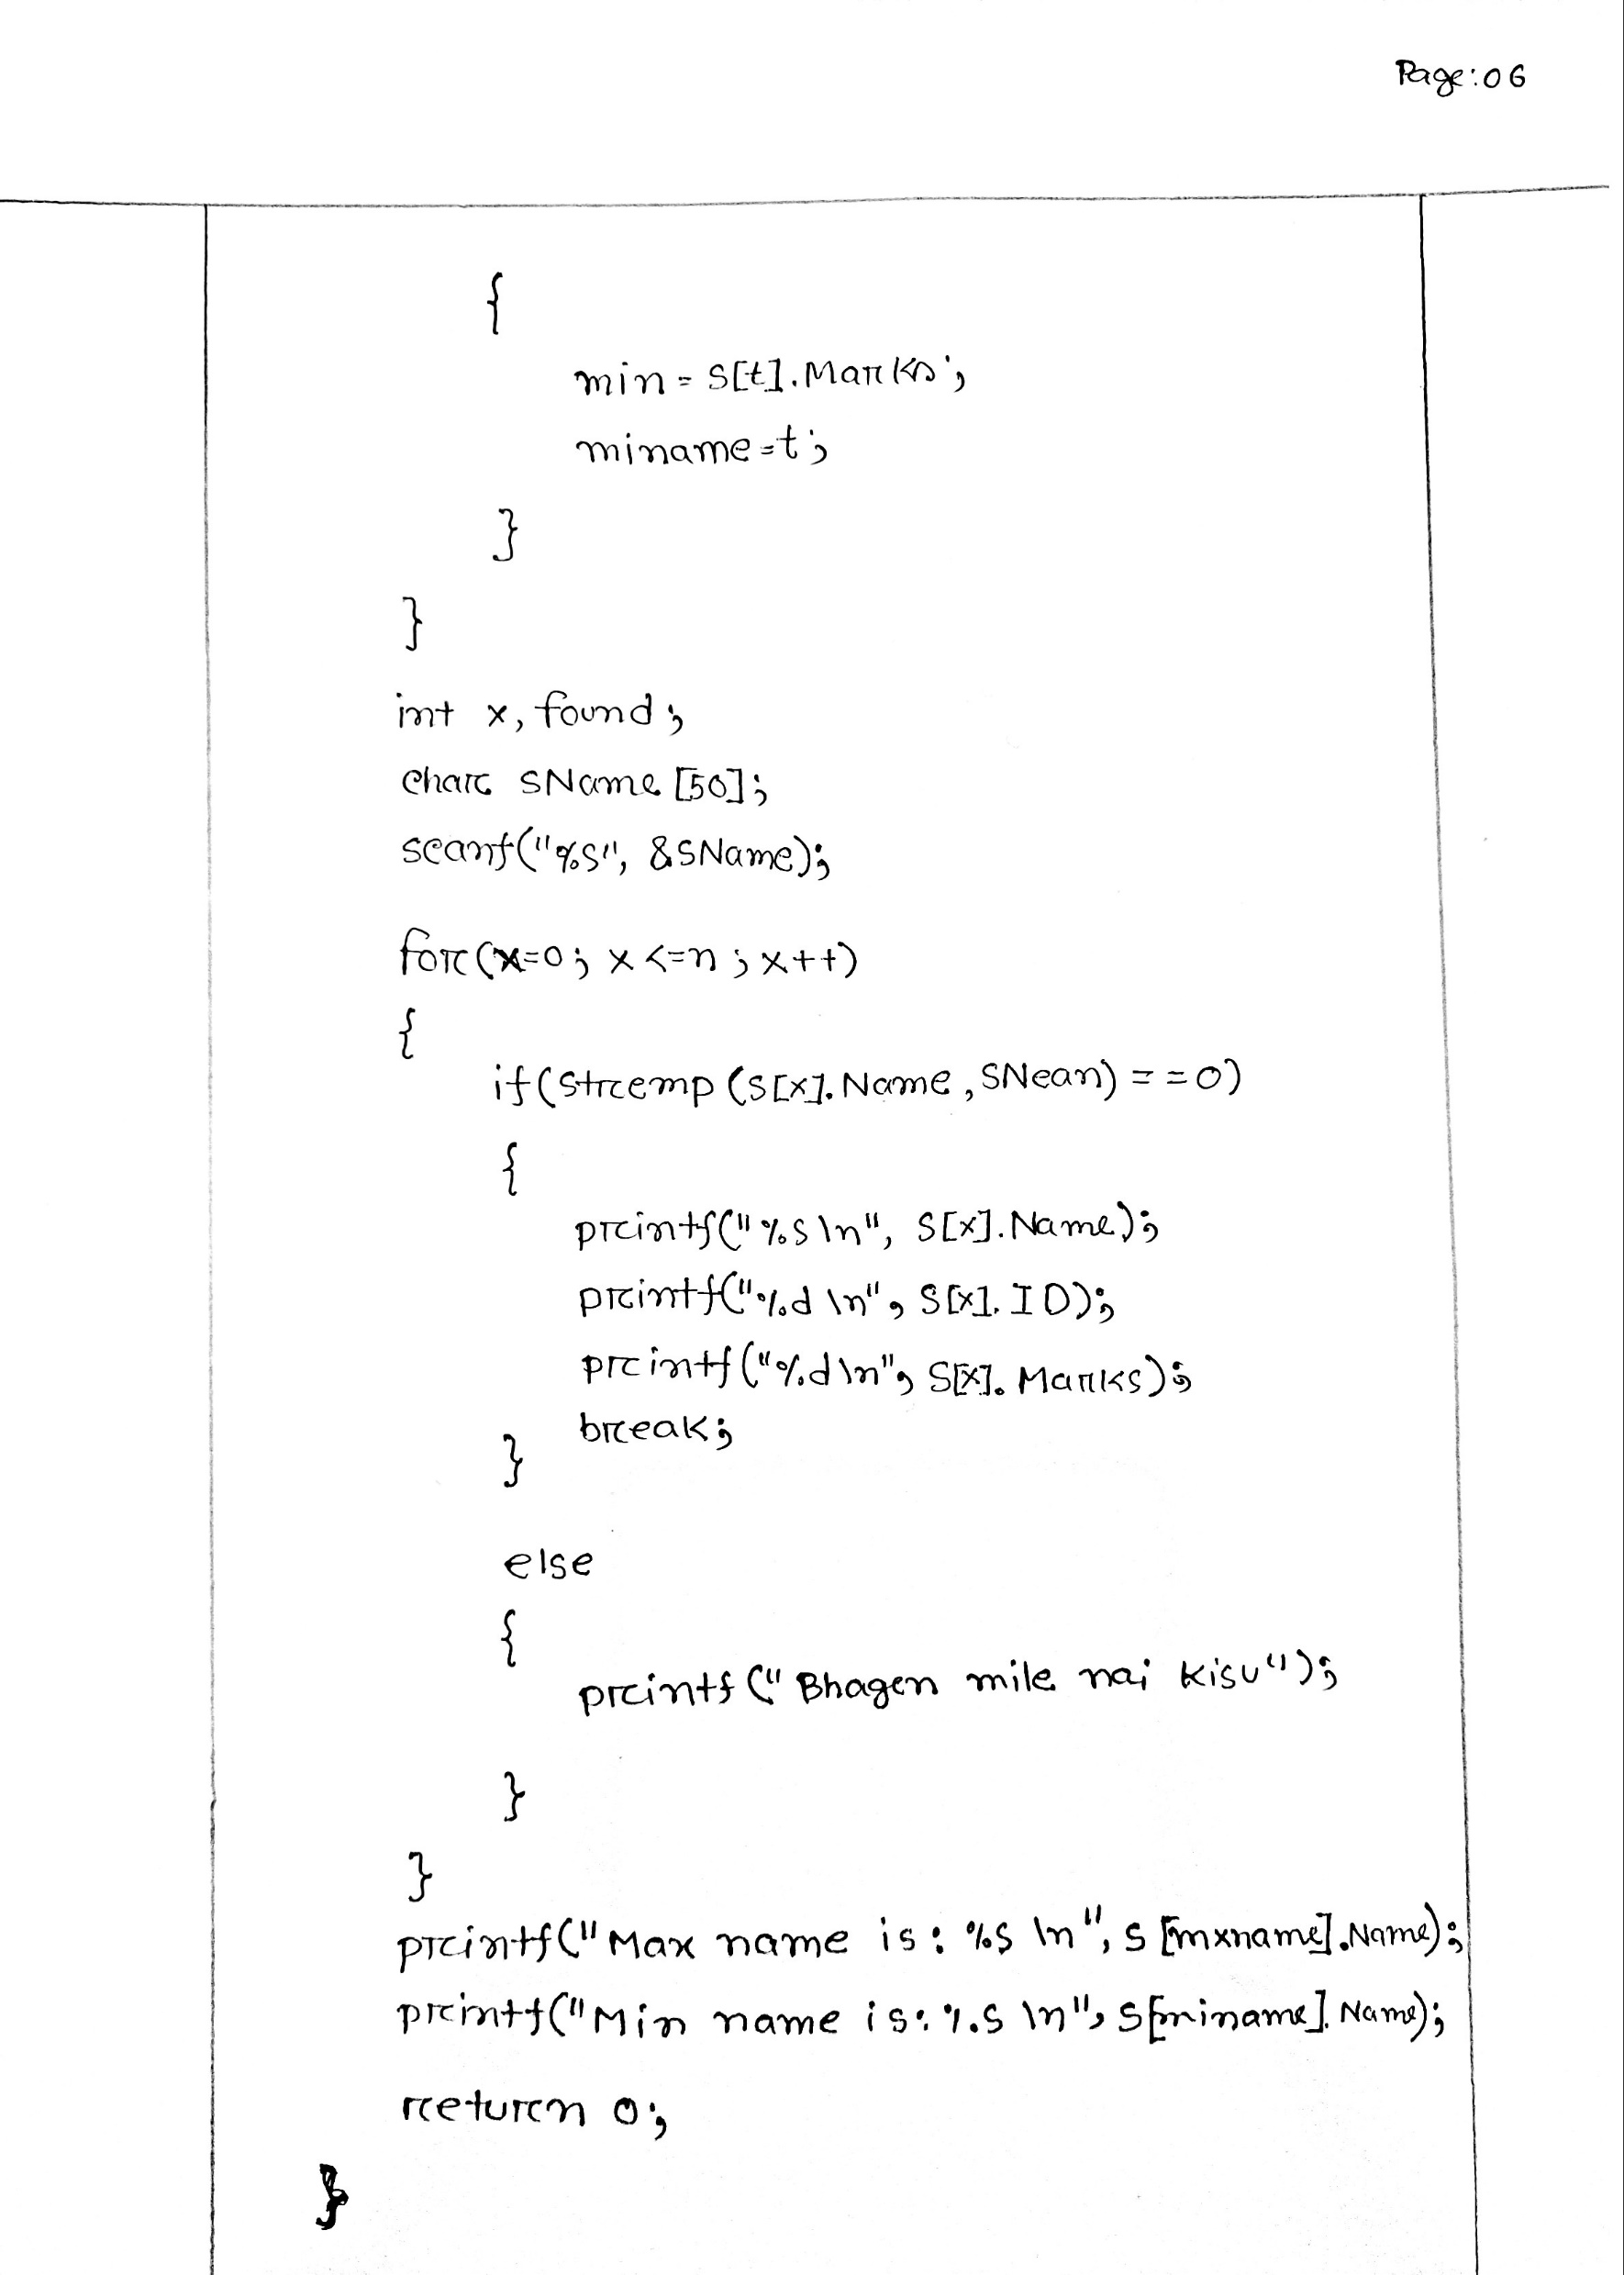 Page:06
{
min = S[t].Marks;
miname=t;
}
}
int x, found;
char SName [50];
scanf("%s", &SName);
for(x=0; x<=n; x++)
{
if(strcmp(S[x].Name, SNean) ==0)
{
printf("%s\n", S[x].Name);
printf("%d\n", S[x].ID);
printf("%d\n", S[x].Marks);
break;
}
else
{
printf("Bhagen mile nai kisu");
}
}
printf("Max name is: %s \n", S[mxname].Name);
printf("Min name is: %s \n", S[miname].Name);
return 0;
}